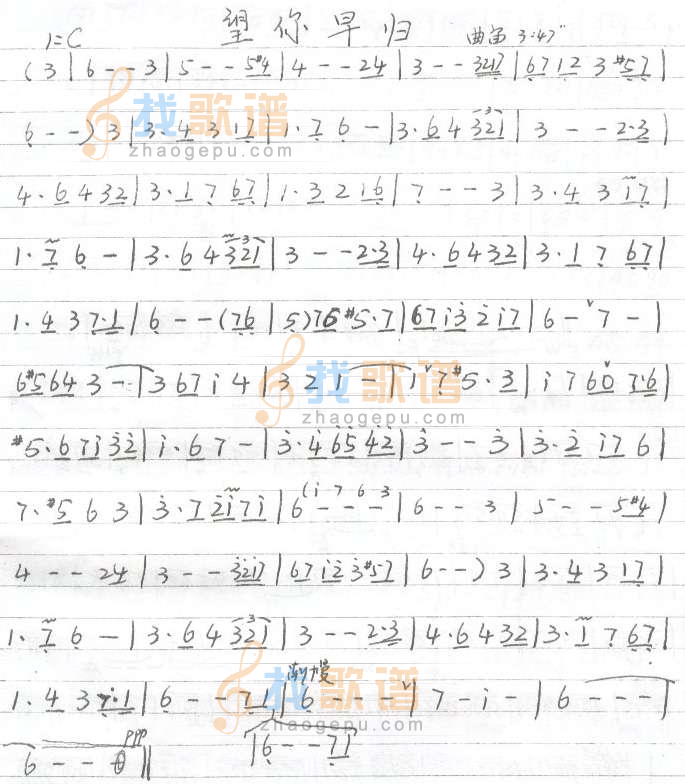 望你早归
1=C 曲笛 3:47"
(3 | 6 - - 3 | 5 - - 5#4 | 4 - - 24 | 3 - - 3217 | 6712 3 #57 |
6 - -) 3 | 3·4 3 17 | 1·7 6 - | 3·6 4 321 | 3 - - 2·3 |
4·6 4 32 | 3·1 7 67 | 1·3 2 16 | 7 - - 3 | 3·4 3 17 |
1·7 6 - | 3·6 4 321 | 3 - - 2·3 | 4·6 4 32 | 3·1 7 67 |
1·4 3 7·1 | 6 - - (76 | 5) 76 #5·7 | 67 i3 2 i7 | 6 - ˅ 7 - |
6#564 3 - | 3 67 i 4 | 3 2 1 - | 1 ˅ 7 #5·3 | i 7 60 ˅ 7·6 |
#5·67i 32 | i·6 7 - | 3·4 65 42 | 3 - - 3 | 3·2 i7 6 |
7·#5 6 3 | 3·7 2i7i | 6 (i - 7 - 6 - 3 | 6 - - 3 | 5 - - 5#4 |
4 - - 24 | 3 - - 32i7 | 67i2 3#57 | 6 - -) 3 | 3·4 3 17 |
1·7 6 - | 3·6 4 321 | 3 - - 2·3 | 4·6 4 32 | 3·1 7 67 |
渐慢
1·4 3 7·1 | 6 - - 71 | 6 - - - ˅ | 7 - i - | 6 - - - |
6 - - 0 ‖ ppp | 6 - - 71
找歌谱
zhaogepu.com
找歌谱
zhaogepu.com
找歌谱
zhaogepu.com